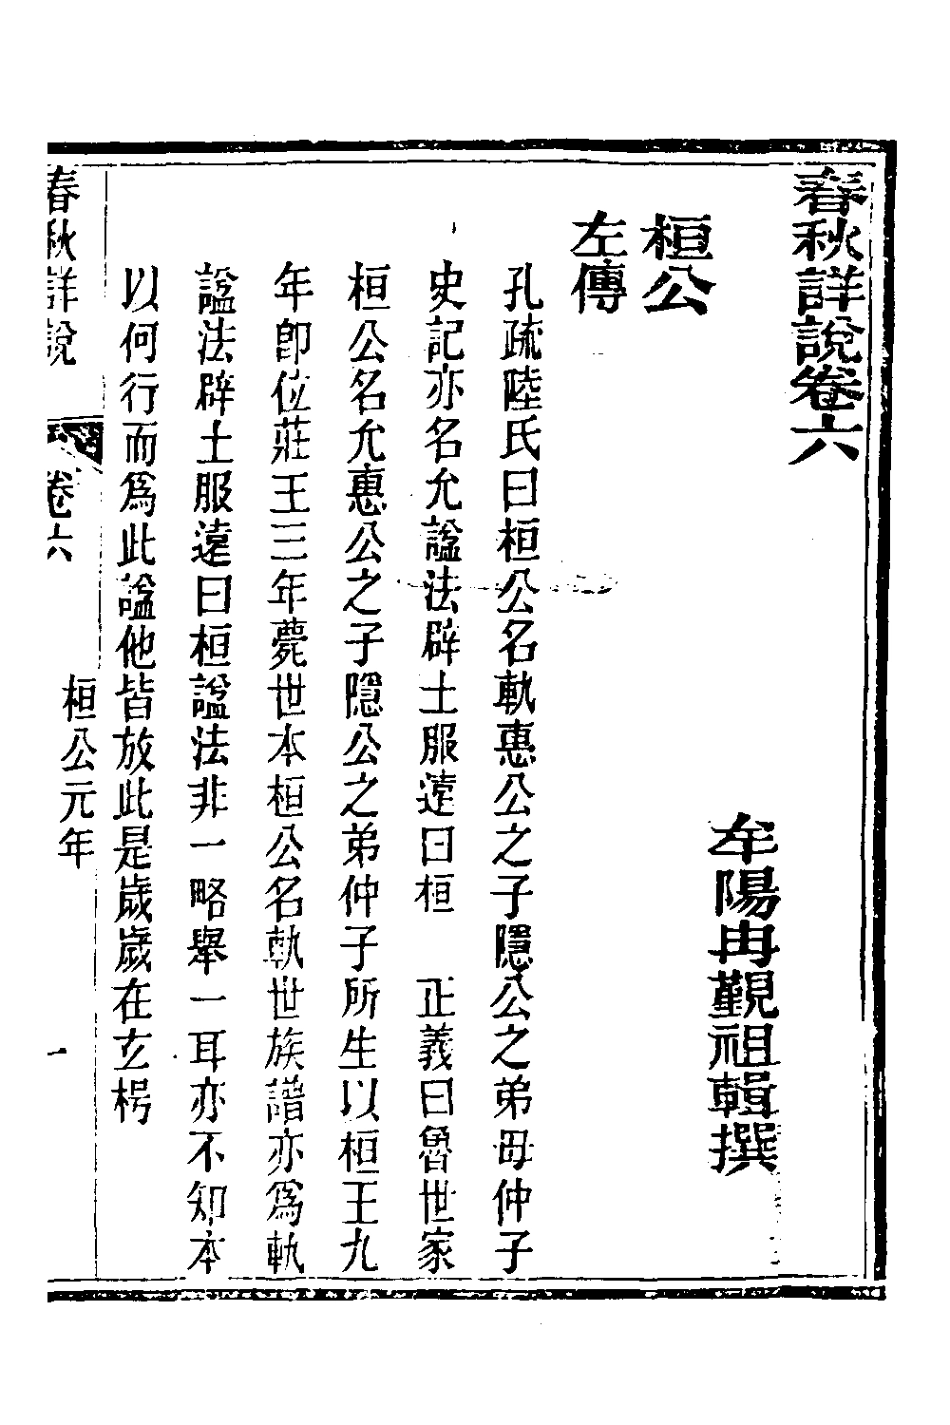 春秋詳說卷六
牟陽冉覲祖輯撰
桓公
左傳
孔疏陸氏曰桓公名軌惠公之子隱公之弟母仲子
史記亦名允諡法辟土服遠曰桓　正義曰魯世家
桓公名允惠公之子隱公之弟仲子所生以桓王九
年卽位莊王三年薨世本桓公名軌世族譜亦爲軌
諡法辟土服遠曰桓諡法非一略舉一耳亦不知本
以何行而爲此諡他皆放此是歲歲在玄枵
春秋詳說　卷六　桓公元年　一